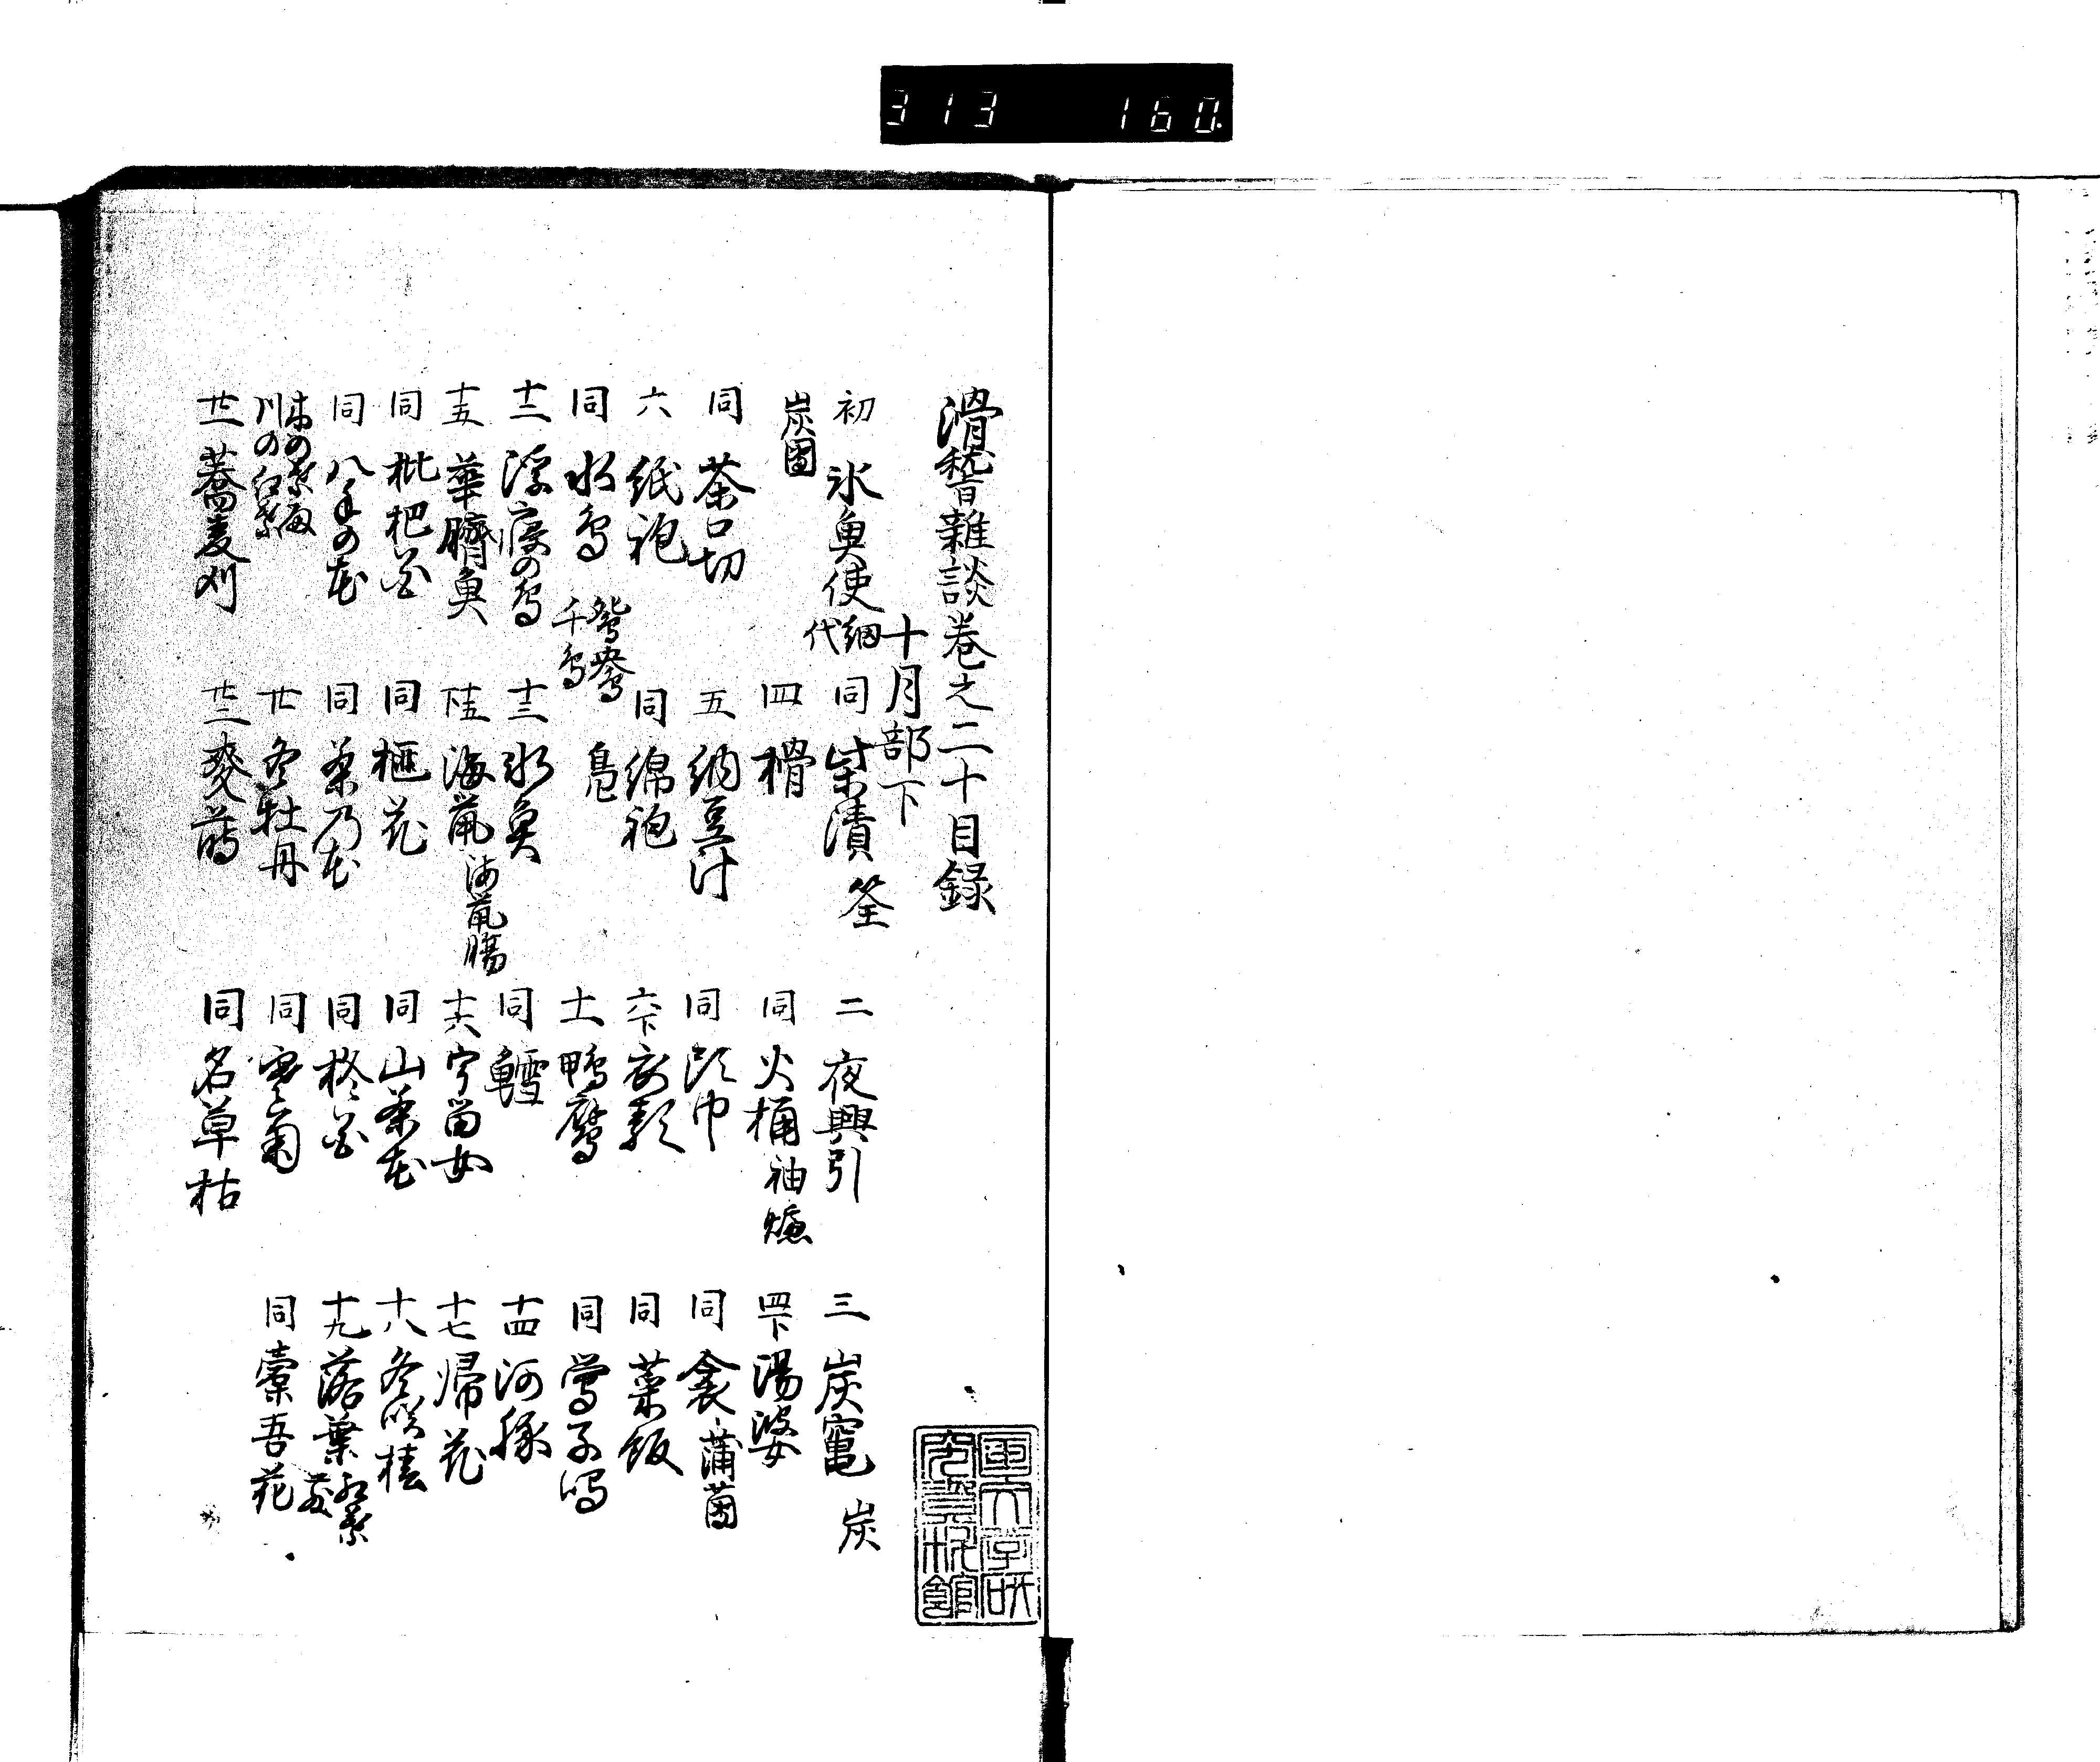 313 160.
滑稽雑談巻之二十目録
十月部下
初 氷魚使 網代 同 柴漬 筌 二 夜興引 三 炭竃 炭
炭圑 四 榾 同 火桶 袖爐 四下 湯婆
同 茶口切 五 納豆汁 同 頭巾 同 衾 蒲団
六 紙袍 同 綿袍 六下 同 菜飯
同 水鳥 鴛鴦 千鳥 鳧 十一 鴨鷹 同 鶯子鳴
十二 浮寝の鳥 十三 氷魚 同 鱈 十四 河豚
十五 華臍魚 十五下 海鼠 海鼠腸 十六 守宮女 十七 帰花
同 枇杷花 同 榧花 同 山茶花 十八 冬咲椿
同 八手の花 同 茶乃花 同 柊花 十九 落葉 紅葉
木の葉 川の紅葉 廿 冬牡丹 同 寒菊 同 槖吾花
廿二 蕎麦刈 廿三 麥蒔 同 名草枯
国文学研究資料館